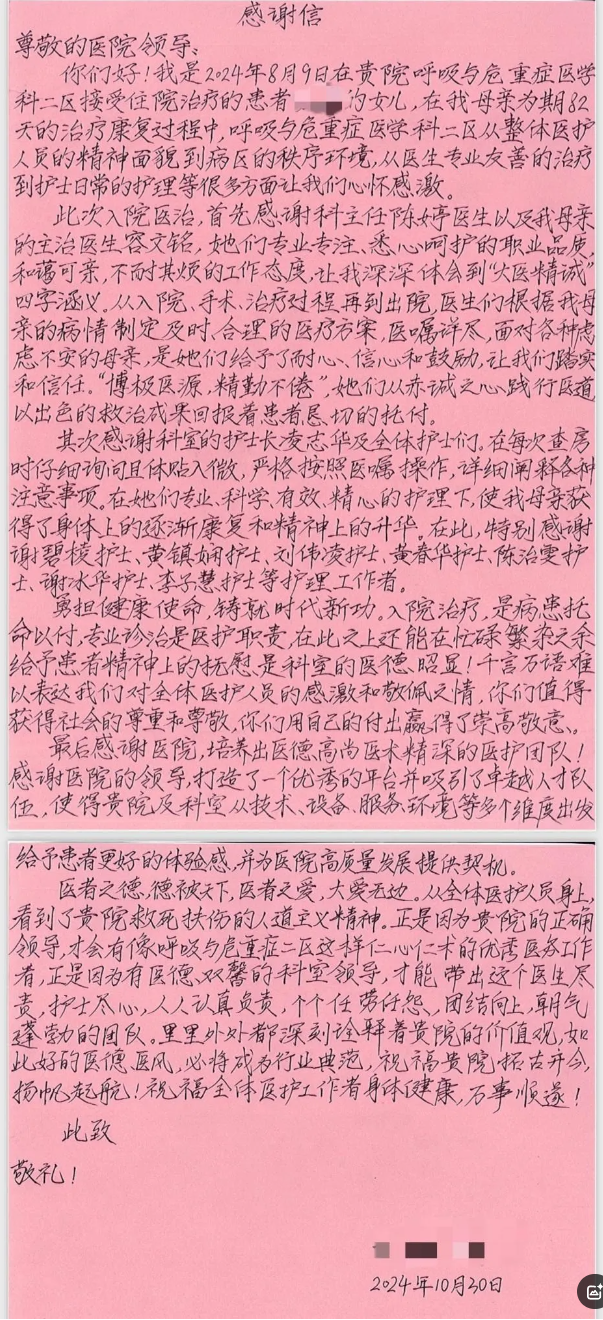 感谢信
尊敬的医院领导:
你们好!我是2024年8月9日在贵院呼吸与危重症医学
科二区接受住院治疗的患者 的女儿,在我母亲为期82
天的治疗康复过程中,呼吸与危重症医学科二区从整体医护
人员的精神面貌到病区的秩序环境,从医生专业友善的治疗
到护士日常的护理等很多方面让我们心怀感激。
此次入院医治,首先感谢科主任陈婷医生以及我母亲
的主治医生容文铭,她们专业专注、悉心呵护的职业品质,
和蔼可亲,不耐其烦的工作态度,让我深深体会到“大医精诚”
四字涵义。从入院、手术、治疗过程再到出院,医生们根据我母
亲的病情制定及时、合理的医疗方案,医嘱详尽,面对各种虑
虑不安的母亲,是她们给予了耐心、信心和鼓励,让我们踏实
和信任。“博极医源,精勤不倦”,她们从赤诚之心践行医道,
以出色的救治成果回报着患者恳切的托付。
其次感谢科室的护士长凌志华及全体护士们。在每次查房
时仔细询问且体贴入微,严格按照医嘱操作,详细阐释各种
注意事项。在她们专业、科学、有效、精心的护理下,使我母亲获
得了身体上的逐渐康复和精神上的升华。在此,特别感谢
谢碧棱护士、黄镇娴护士、刘伟凌护士、黄春华护士、陈治雯护
士、谢冰华护士、李子慧护士等护理工作者。
勇担健康使命,铸就时代新功。入院治疗,是病患托
命以付,专业诊治是医护职责,在此之上还能在忙碌繁杂之余
给予患者精神上的抚慰是科室的医德昭显!千言万语难
以表达我们对全体医护人员的感激和敬佩之情,你们值得
获得社会的尊重和尊敬,你们用自己的付出赢得了崇高敬意。
最后感谢医院,培养出医德高尚医术精深的医护团队!
感谢医院的领导,打造了一个优秀的平台并吸引了卓越人才队
伍,使得贵院及科室从技术、设备、服务、环境等多个维度出发
给予患者更好的体验感,并为医院高质量发展提供契机。
医者之德,德被天下,医者之爱,大爱无边。从全体医护人员身上,
看到了贵院救死扶伤的人道主义精神。正是因为贵院的正确
领导,才会有像呼吸与危重症二区这样仁心仁术的优秀医务工作
者,正是因为有医德双馨的科室领导,才能带出这个医生尽
责,护士尽心,人人认真负责,个个任劳任怨、团结向上,朝气
蓬勃的团队。里里外外都深刻诠释着贵院的价值观,如
此好的医德医风,必将成为行业典范,祝福贵院拓古开今,
扬帆起航!祝福全体医护工作者身体健康,万事顺遂!
此致
敬礼!
2024年10月30日